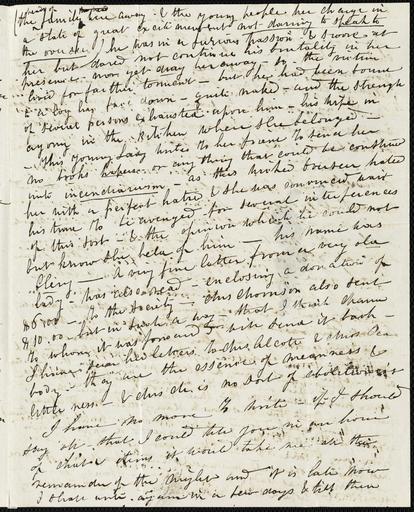 the family were away - & the young people her charge in
a state of great excitement but not daring to speak to
the overseer, he was in a furious passion & swore at
her but dared not continue his brutality in her
presence - nor yet drag her away, so the victim
lived for farther torment - but her had been bound
& lay her face down - quite naked - and the strength
of several persons exhausted upon him - his wife in
agony in the kitchen where she belonged -
This young Lady writes to her friend to send her
no books papers or any thing that could be construed
into incendiarism - as this wretched overseer hated
her with a perfect hatred & she was convinced would
his time to be avenged for several interferences
of this sort - & the opinion which he could not
but know she held of him - his name was
- A very fine letter from a very old
lady - was also read - enclosing a donation of
$6.00 - to the Society - Mrs Thomson also sent
$10.00 - but in such a way - that I think
to whom it was forwarded will send it back -
I have seen her letters to Mrs Alcott & Miss
body - they are the essence of meanness &
littleness & this she is no sort of abolitionist
I have no more to write - if I should
say all that I could tell you in an hour
of chitchat items it would take me all the
remainder of the night and it is late now
I shall write again in a few days & till then